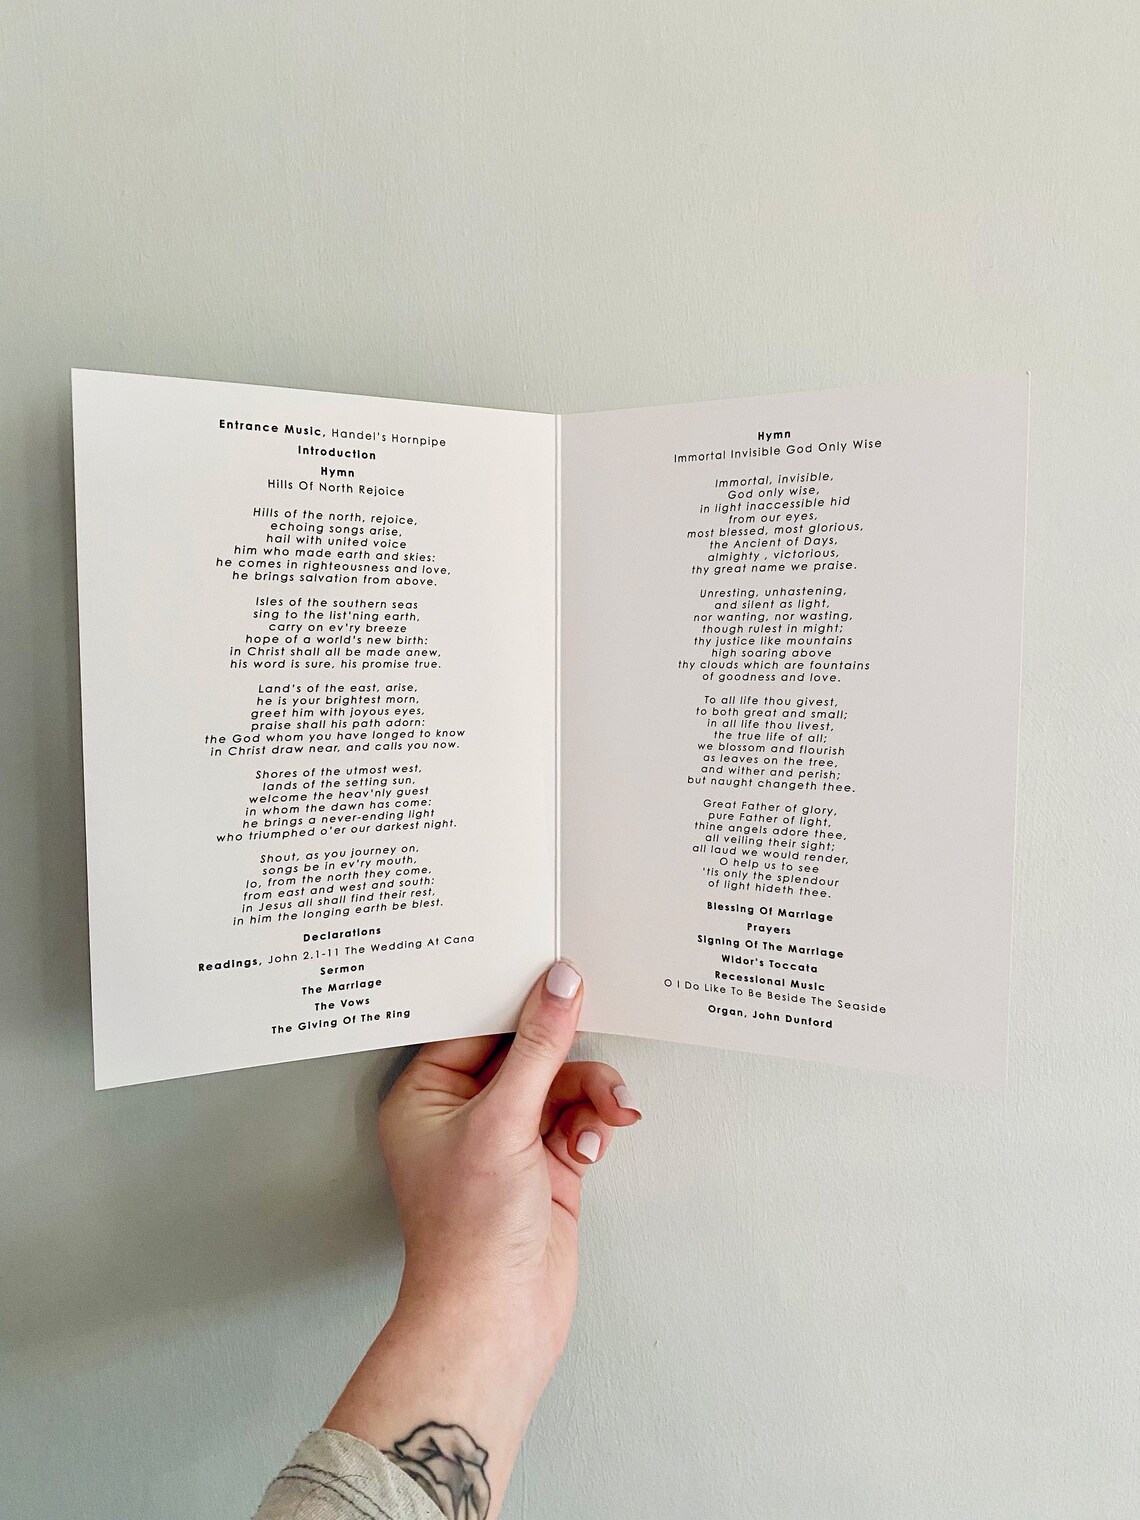 Entrance Music, Handel's Hornpipe
Introduction
Hymn
Hills Of North Rejoice
Hills of the north, rejoice,
echoing songs arise,
hail with united voice
him who made earth and skies:
he comes in righteousness and love,
he brings salvation from above.
Isles of the southern seas
sing to the list'ning earth,
carry on ev'ry breeze
hope of a world's new birth:
in Christ shall all be made anew,
his word is sure, his promise true.
Land's of the east, arise,
he is your brightest morn,
greet him with joyous eyes,
praise shall his path adorn:
the God whom you have longed to know
in Christ draw near, and calls you now.
Shores of the utmost west,
lands of the setting sun,
welcome the heav'nly guest
in whom the dawn has come:
he brings a never-ending light
who triumphed o'er our darkest night.
Shout, as you journey on,
songs be in ev'ry mouth,
lo, from the north they come,
from east and west and south:
in Jesus all shall find their rest,
in him the longing earth be blest.
Declarations
Readings, John 2.1-11 The Wedding At Cana
Sermon
The Marriage
The Vows
The Giving Of The Ring
Hymn
Immortal Invisible God Only Wise
Immortal, invisible,
God only wise,
in light inaccessible hid
from our eyes,
most blessed, most glorious,
the Ancient of Days,
almighty , victorious,
thy great name we praise.
Unresting, unhastening,
and silent as light,
nor wanting, nor wasting,
though rulest in might;
thy justice like mountains
high soaring above
thy clouds which are fountains
of goodness and love.
To all life thou givest,
to both great and small;
in all life thou livest,
the true life of all;
we blossom and flourish
as leaves on the tree,
and wither and perish;
but naught changeth thee.
Great Father of glory,
pure Father of light,
thine angels adore thee,
all veiling their sight;
all laud we would render,
O help us to see
'tis only the splendour
of light hideth thee.
Blessing Of Marriage
Prayers
Signing Of The Marriage
Widor's Toccata
Recessional Music
O I Do Like To Be Beside The Seaside
Organ, John Dunford